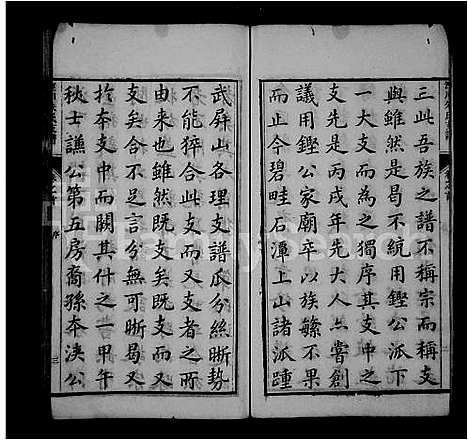 三此吾族之譜不稱宗而稱支
與雖然是曷不統用鏗公派下
一大支而為之獨序其支中之
支先是丙戌年先大人亦嘗創
議用鏗公家廟卒以族繁不果
而止今碧畦石潭上山諸派踵
武屏山各理支譜瓜分絲晰勢
不能猝合此支而又支者之所
由来也雖然既支矣而支而又
支矣合不足言分無可晰曷又
於本支中而闕其什之一甲午
秋士譙公第五房裔孫本浹公
序